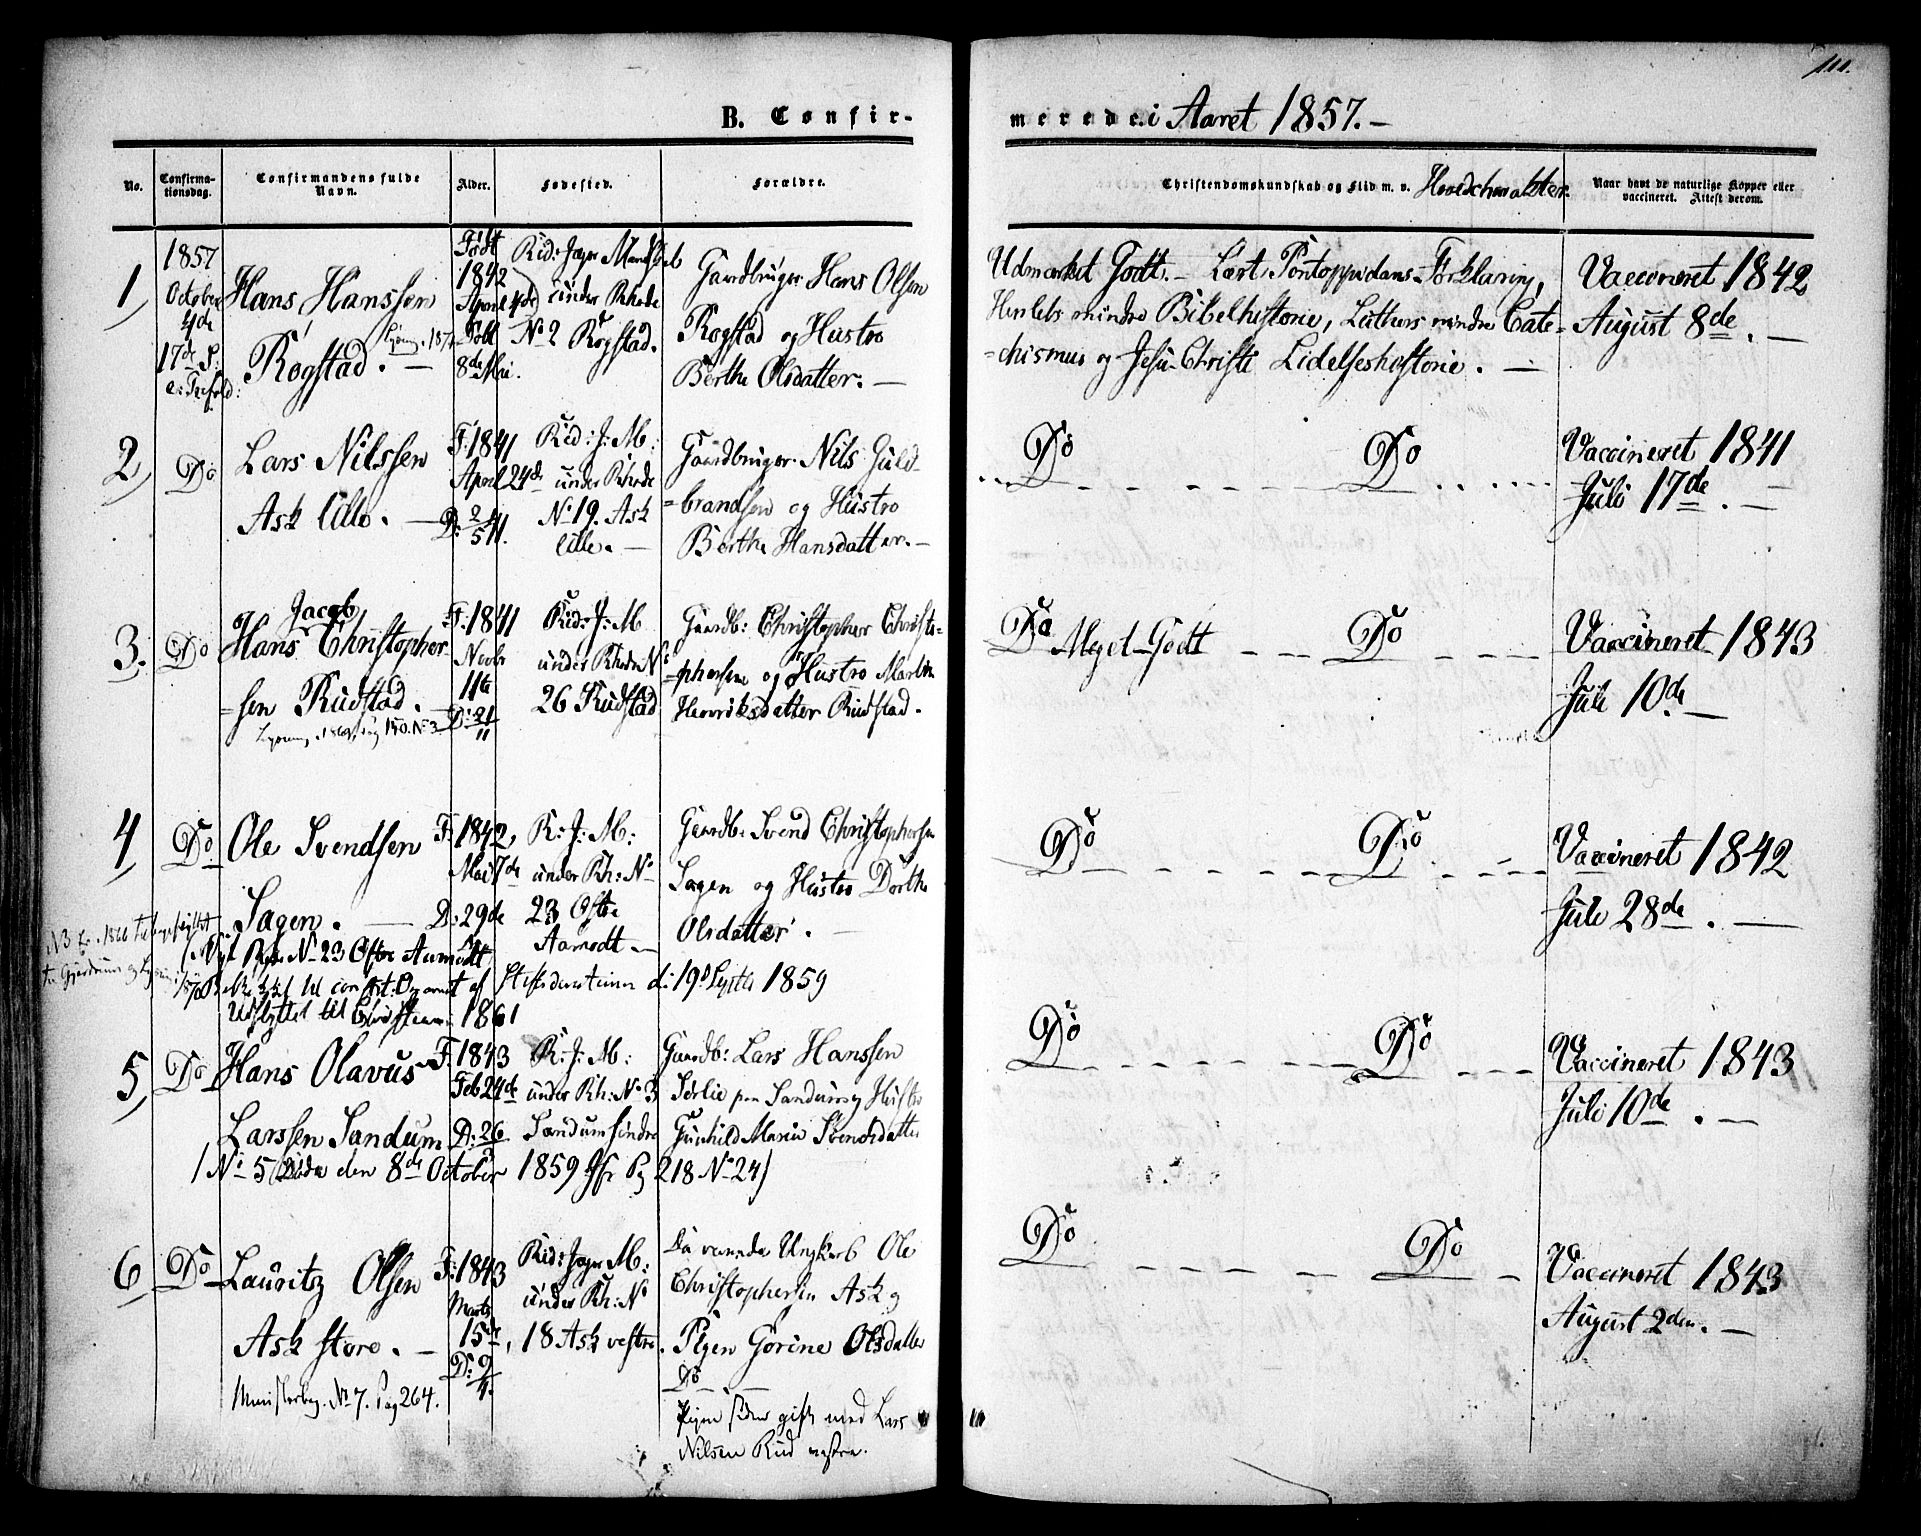 111.
B. Confir-
merede i Aaret 1857.-
No.
Confirma-
tionsdag.
Confirmandens fulde
Navn.
Alder.
Fødested.
Forældre.
Christendomskundskab og Flid m. v. Hovedcharakter.
Naar havt de naturlige Kopper eller
vaccineret. Attest derom.
1)
1857
October
4de
17de S:
e: Trefold:
Hans Hanssen
Rogstad. -
Født
1842
April 4de
Døbt
8de Mai.
Kid: Jæger Mandskab
under Rhode
No 2 Rogstad.
Gaardbruger Hans Olsen
Rogstad og Hustro
Berthe Olsdatter. -
Udmærket Godt. - Læst Pontoppidans Forklaring,
Herslebs mindre Bibelhistorie, Luthers mindre Cate-
-chismus og Jesu Christi Lidelseshistorie. -
Vaccineret 1842
August 8de. -
2)
Do
Lars Nilssen
Ask lille. -
F: 1841
April 24de
D: 2/5 41.
Kid: J: M:
under Rhode
No 19. Ask
lille. -
Gaardbruger Nils Guld-
=brandsen og Hustro
Berthe Hansdatter. -
Do Do
Vaccineret 1841
Juli 17de. -
3.
Do
Jacob
Hans Christopher-
=sen Rudstad.
F: 1841
Novbr
11te
D: 21/11
Kid: J: M
under Rhode No
26 Rudstad
Gaardb: Christopher Christo-
=phersen og Hustro Marthe
Henriksdatter Rudstad.
Do Meget-Godt Do
Vaccineret 1843
Juli 10de -
4)
Do
Ole Svendsen
Sagen. -
F: 1842,
Mai 7de
D: 29de
K: J: M:
under Rh: No
23 Østre
Aamodt -
Gaardb: Svend Christophersen
Sagen og Hustro Dorthe
Olsdatter.
Do Do
Vaccineret 1842
Juli 28de. -
No 23 Østre Aamodt
af Stiftsdirectionen d: 19d Septbr 1859
Udflyttet til Christiania 1861
5)
Do
Hans Olavus
Larssen Sandum
F: 1843
Feb 24de
D: 26
K: J: M:
under Rh: No 3
Sandum søndre
Gaardb: Lars Hanssen
Sørlie paa Sandum og Hustro
Gunhild Marie Svendsdatter
Do Do
Vaccineret 1843
Juli 10de. -
(No 5 døde den 8de October 1859 Jfr Pg 218 No 24)
6)
Do
Lauritz Olsen
Ask store. -
F: 1843
Marts
15de,
D: 9/4.
Kid: Jæger M:
under Rh: No
18 Ask vestre.
Ungkarl Ole
Christophersen Ask og
Pigen Gorine Olsdatter
Do
Pigen siden gift med Lars
Nilsen Rud vestre.
Do Do
Vaccineret 1843
August 2den. -
Ministerbog. No 7. Pag 264.